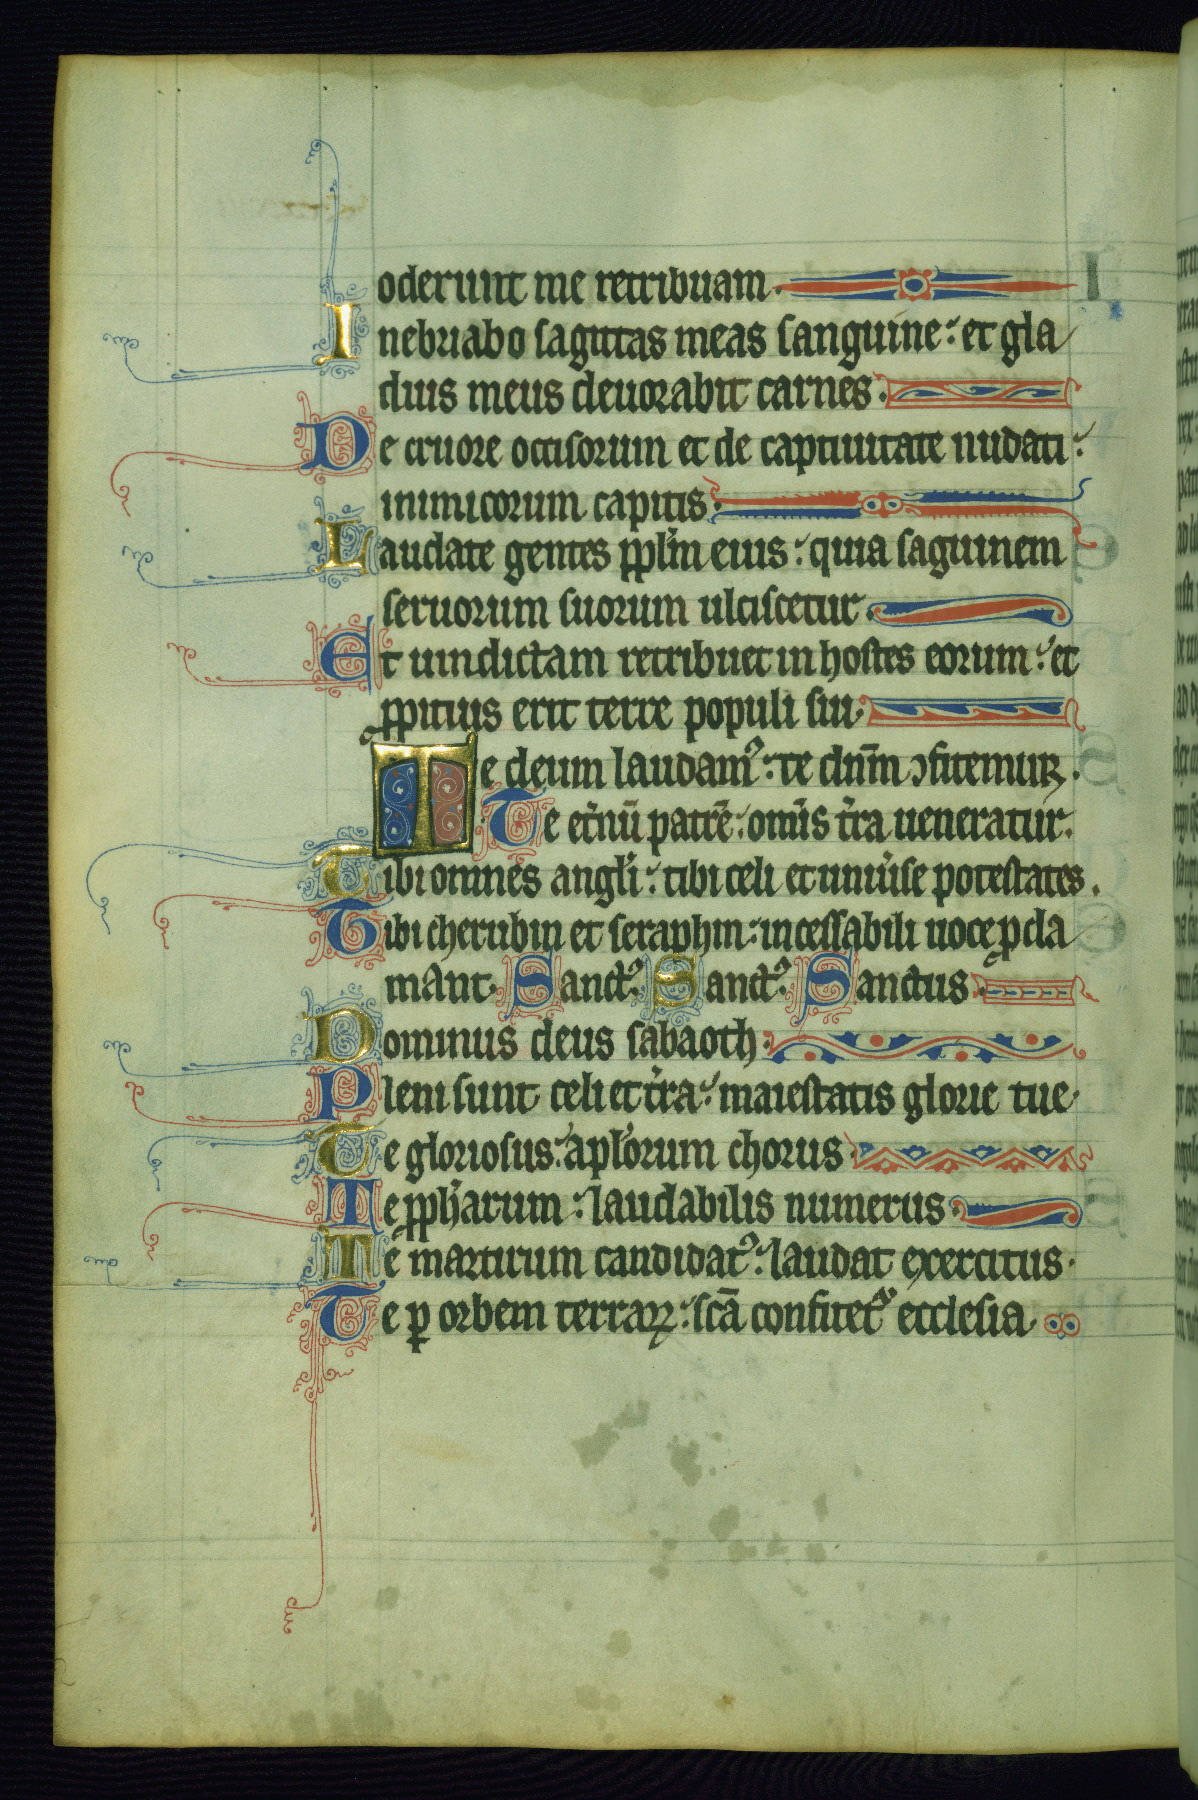 oderunt me retribuam.
Inebriabo sagittas meas sanguine: et gla
dius meus deuorabit carnes.
De cruore occisorum et de captiuitate nudati:
inimicorum capitis.
Laudate gentes pplm̄ eius: quia saguinem
seruorum suorum ulciscetur.
Et uindictam retribuet in hostes eorum: et
ppitius erit terre populi sui.
Te deum laudamꝰ: te dnm̄ ↄfitemur.
Te et̓nū patrē: omīs t̓ra ueneratur.
Tibi omnes angli̓: tibi celi et uniu̓se potestates.
Tibi cherubin et seraphin: incessabili uoce ꝓcla
mant. Sanctꝰ. Sanctꝰ. Sanctus.
Dominus deus sabaoth.
Pleni sunt celi et t̓ra: maiestatis glorie tue.
Te gloriosus: aplo̓rum chorus.
Te ꝓpharum: laudabilis numerus.
Te martirum candidatꝰ: laudat exercitus.
Te ꝑ orbem terraꝝ: scā confitet᷑ ecclesia.